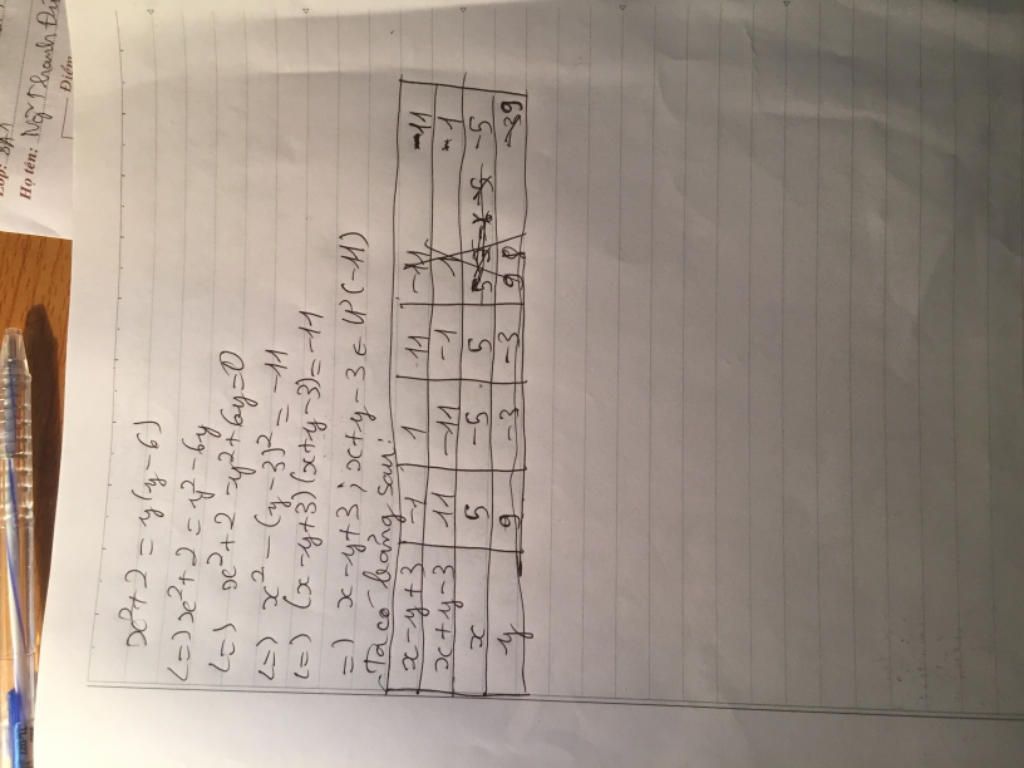 Họ tên:
Điểm
x²+2 = y(y-6)
(=) x²+2 = y²-6y
(=) x²+2-y²+6y=0
(=) x²-(y-3)² = -11
(=) (x-y+3)(x+y-3)=-11
=) x-y+3; x+y-3 ∈ Ư(-11)
Ta có bảng sau:
x-y+3 -1 1 11 -11
x+y-3 11 -11 -1 1
x 5 -5 5 -5
y 9 -3 -3 9